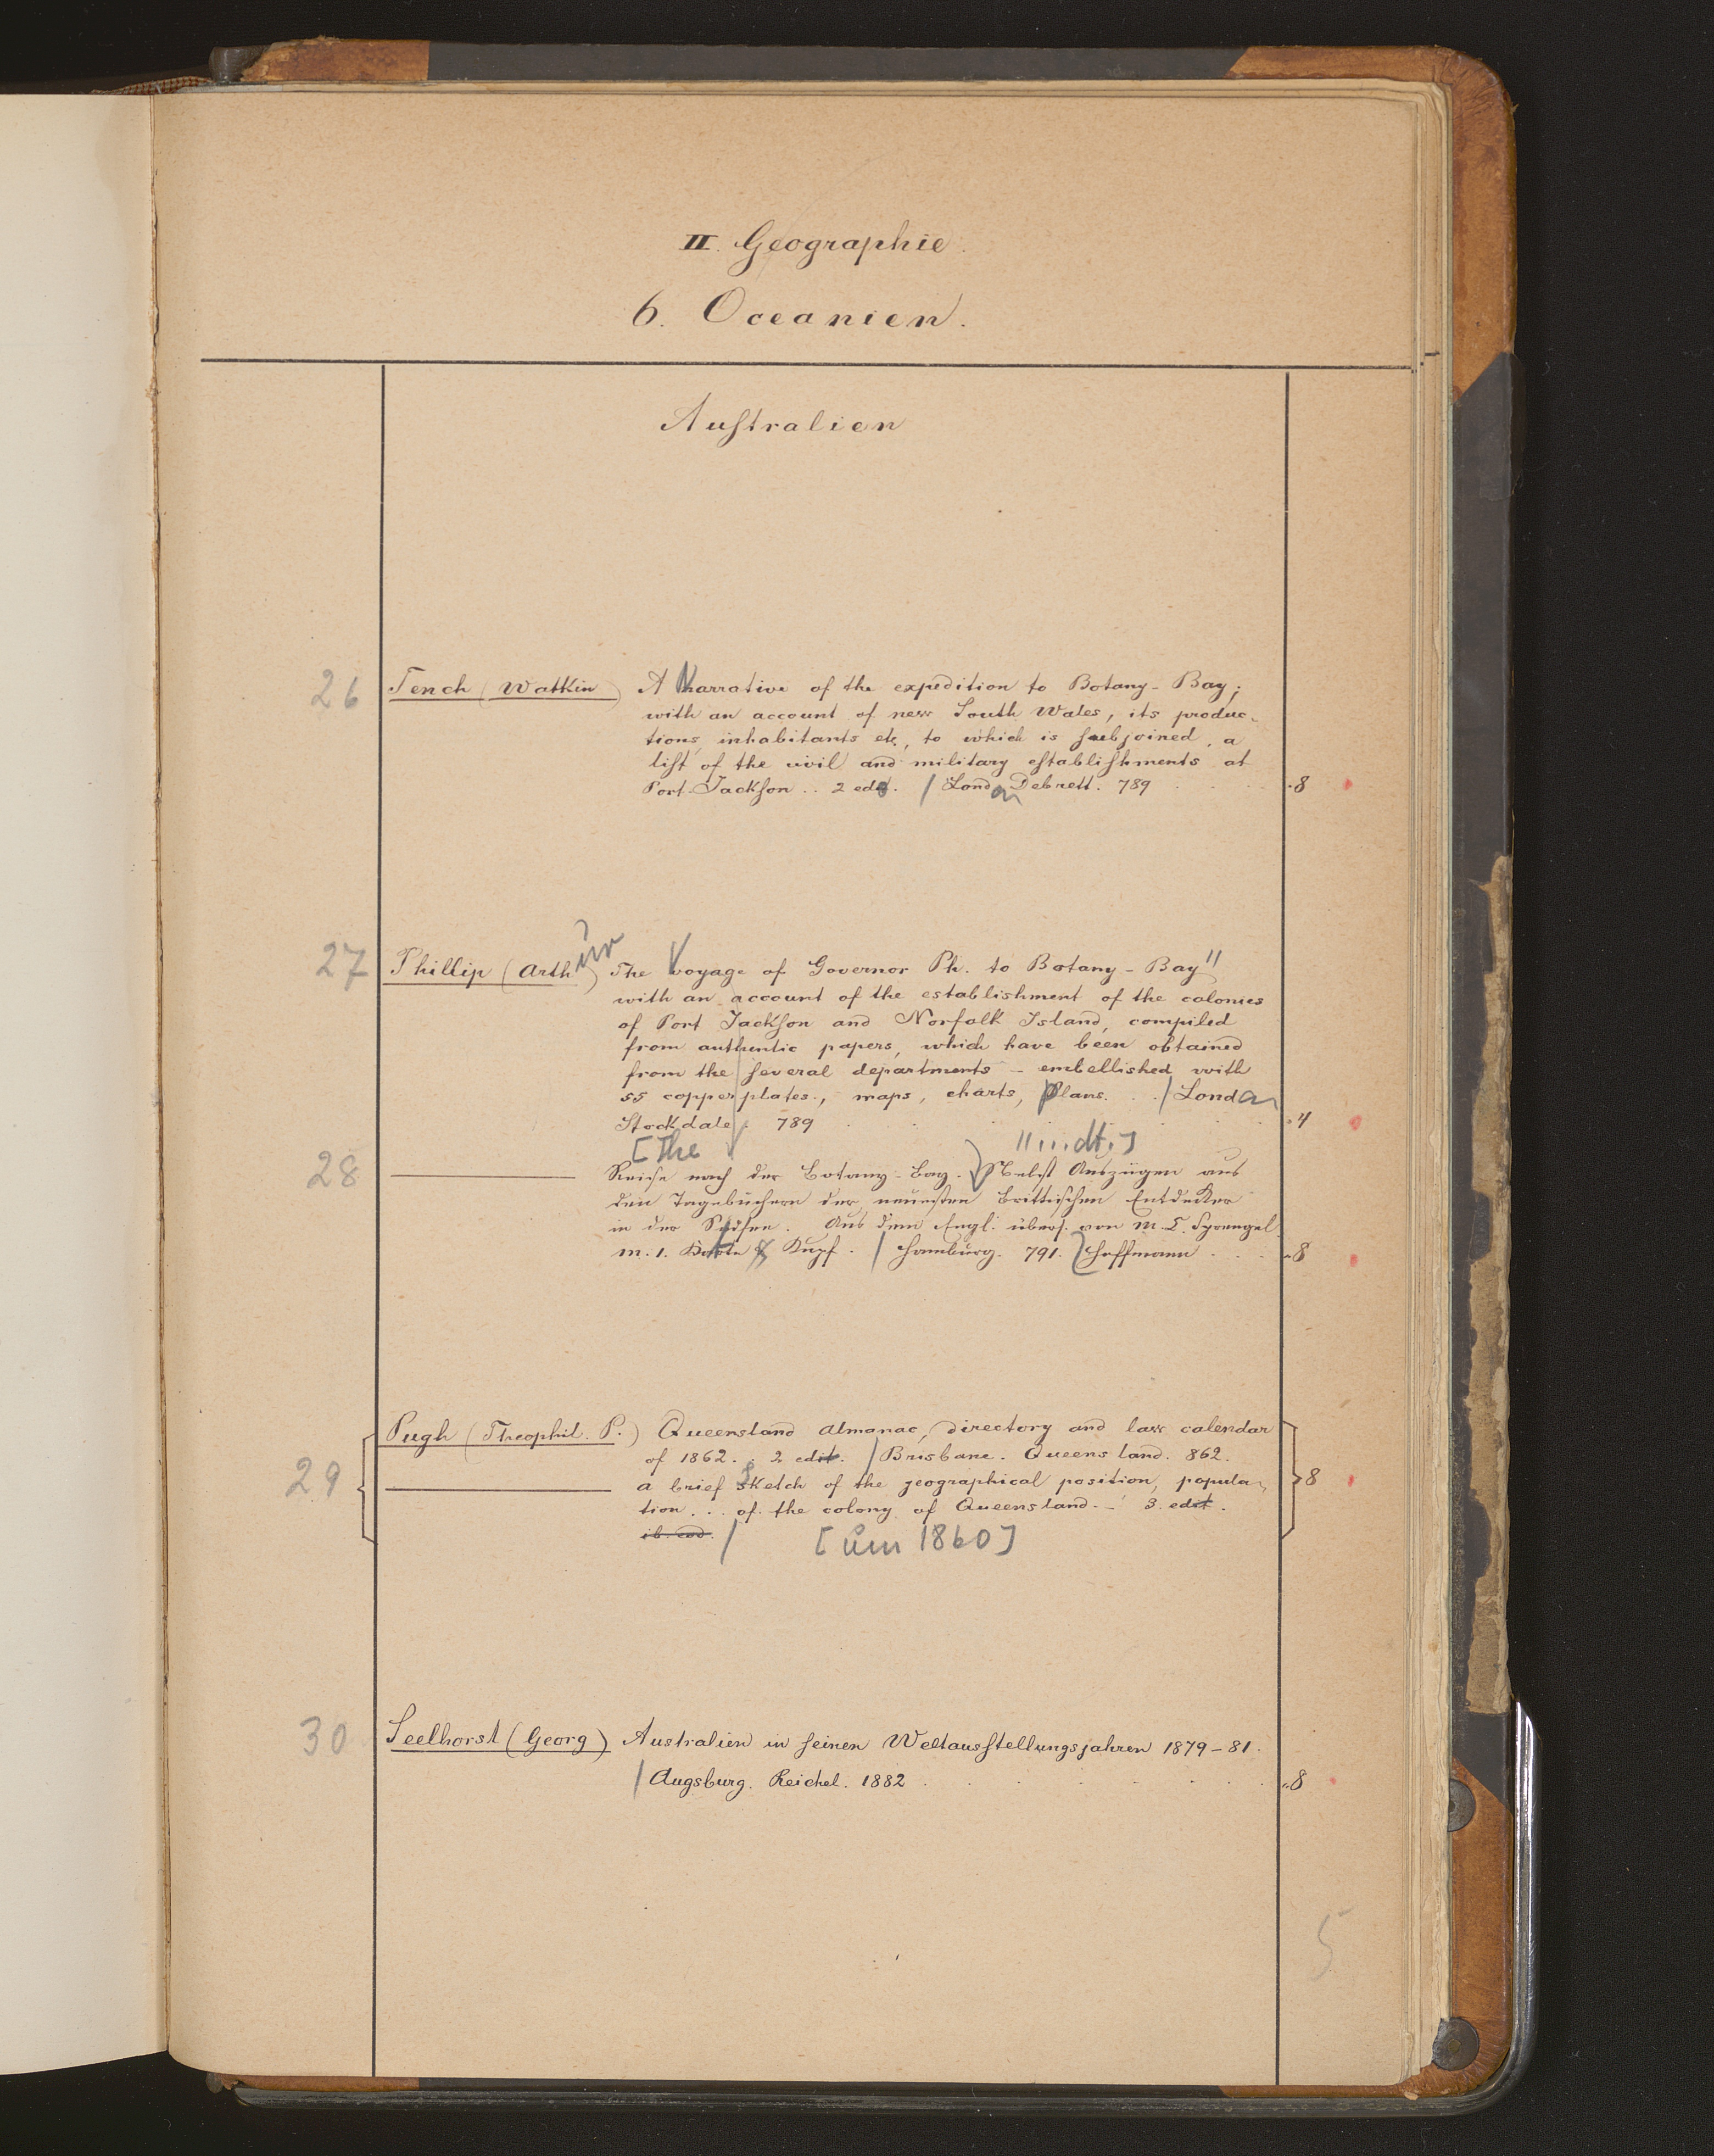 II. Geographie.
6. Oceanien.
Auſtralien
26 Tench (Watkin) A Narrative of the expedition to Botany-Bay;
with an account of new South Wales, its produc-
tions, inhabitants etc, to which is ſubjoined, a
liſt of the civil and military eſtabliſhments at
Port-Jackſon .. 2 ed. / London Debrett. 789 . . . . 8
27 Phillip (Arthur) The Voyage of Governor Ph. to Botany-Bay"
with an account of the establishment of the colonies
of Port Jackſon and Norfolk Island, compiled
from authentic papers, which have been obtained
from the ſeveral departments - embellished with
55 copper plates., maps, charts, plans. . . / London
Stockdale. 789 . . . . 4
[The
28 ——— Reise nach der Botany-Bay. Nebst Auszügen aus
den Tagebüchern der neuesten Brittischen Entdecker
in der Südsee. Aus dem Engl. übers. von M. C. Sprengel.
m. 1. Karte & Kupf. / Hamburg. 791. Hoffmann . . . 8
29 Pugh (Theophil. P.) Queensland almanac, directory and law calendar
of 1862. . 2 edit. / Brisbane. Queensland. 862.
——— a brief Sketch of the geographical position, popula- 8
tion . . . of the colony of Queensland. - 3. edit.
ib. eod. / [um 1860]
30 Seelhorst (Georg) Australien in ſeinen Weltausſtellungsjahren 1879-81.
/ Augsburg. Reichel. 1882 . . . . . . . 8
5